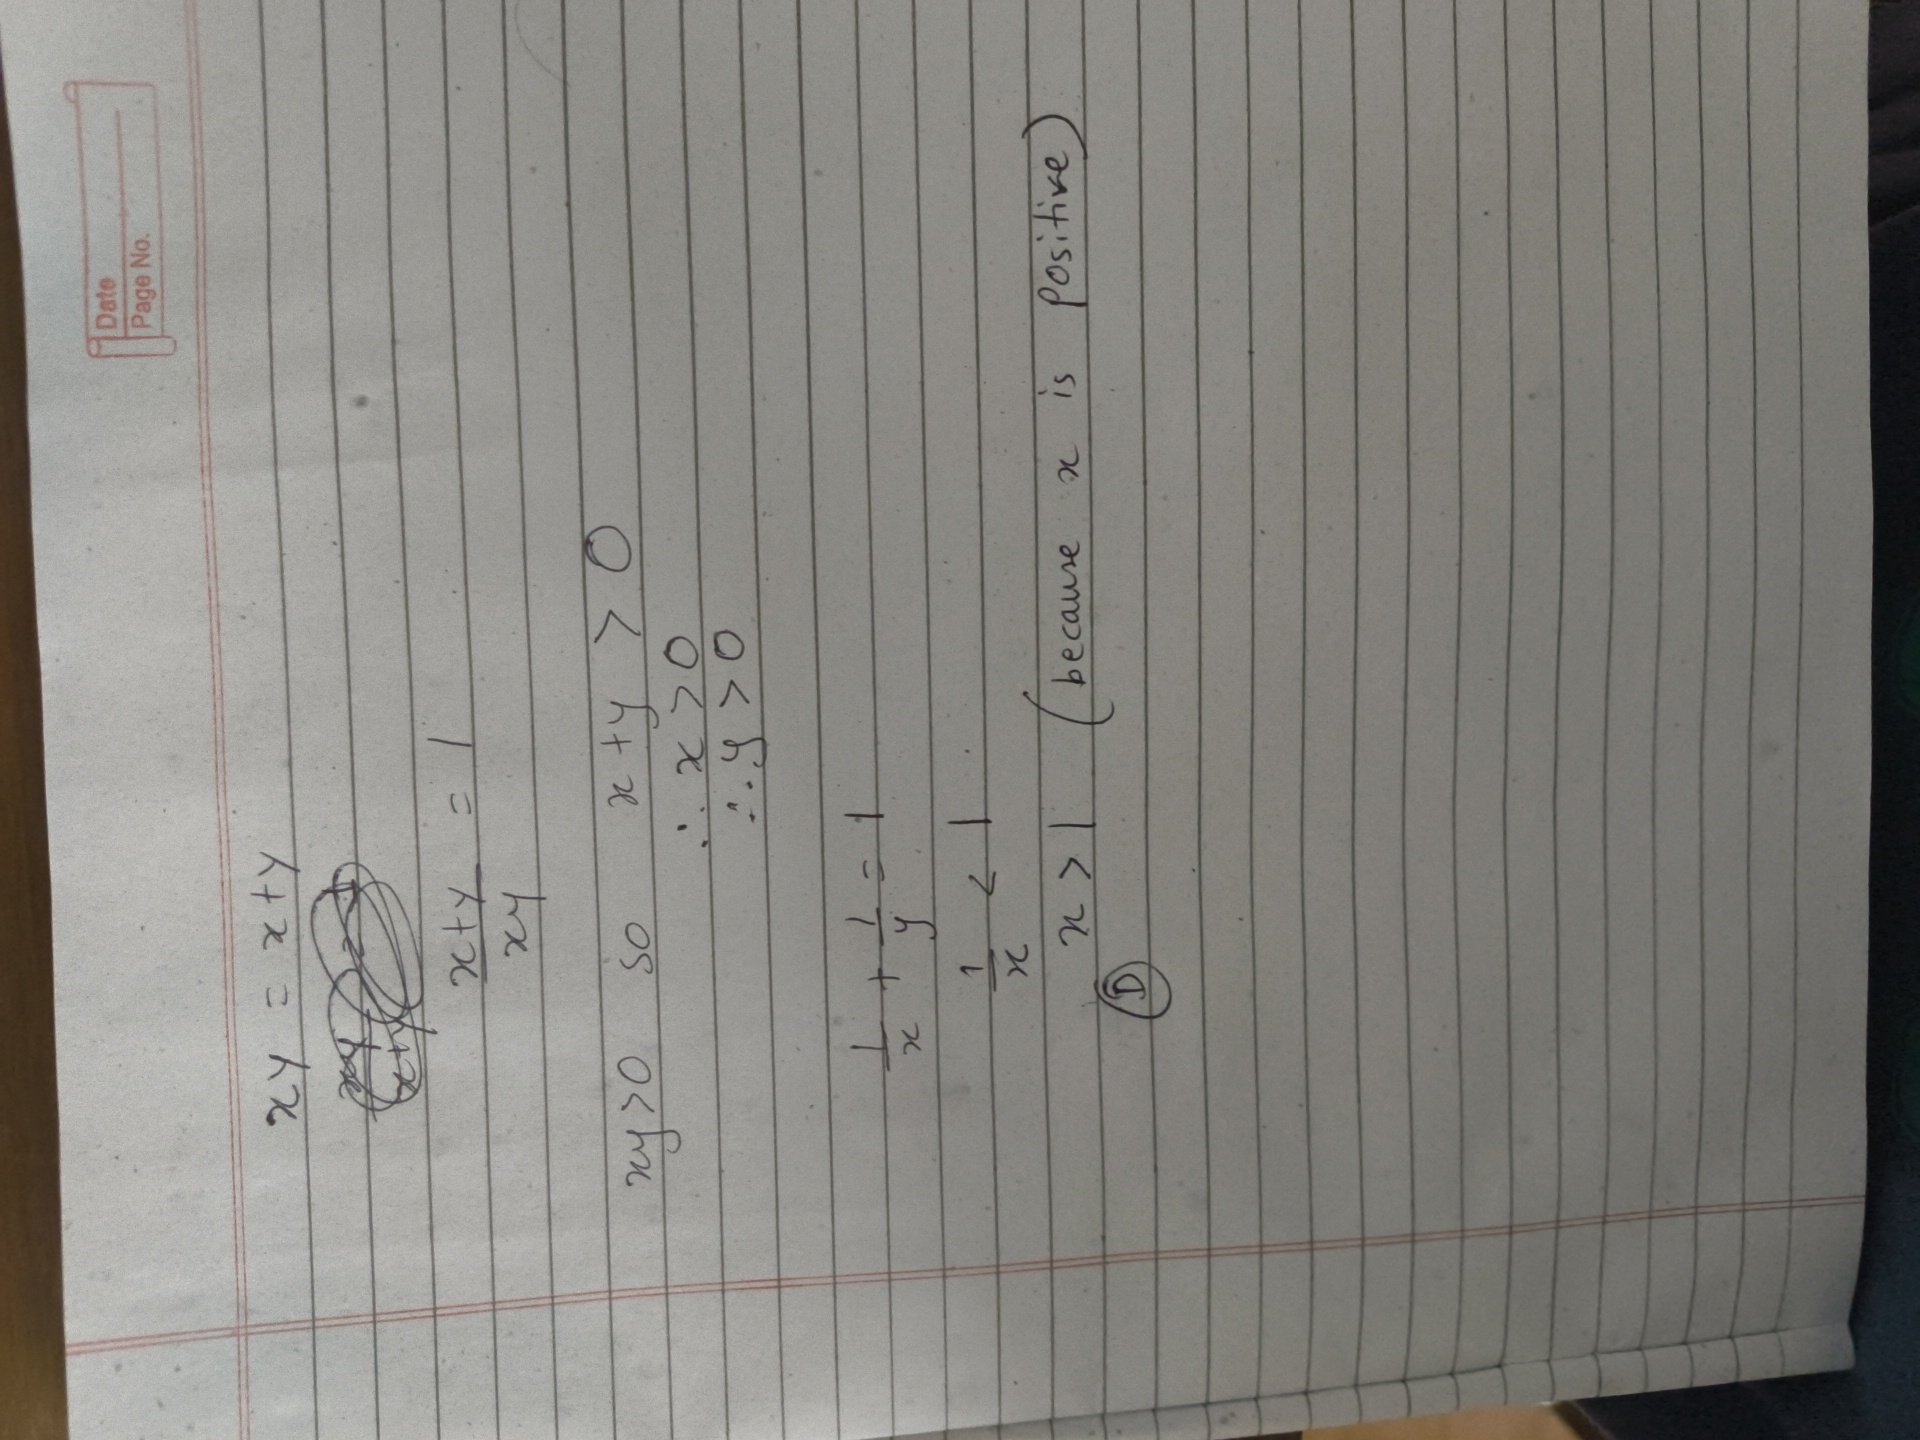 Date
Page No.
xy = x+y
x+y/xy = 1
xy>0 so x+y > 0
∴ x>0
∴ y>0
1/x + 1/y = 1
1/x < 1
x>1 (because x is positive)
D